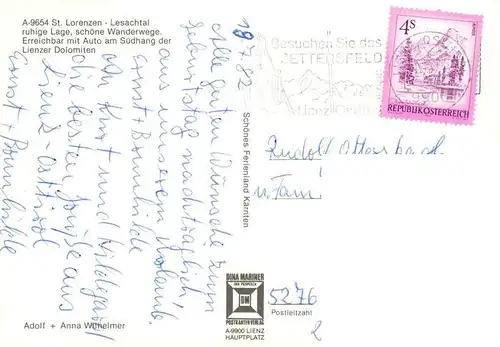 A-9654 St. Lorenzen - Lesachtal
ruhige Lage, schöne Wanderwege.
Erreichbar mit Auto am Südhang der
Lienzer Dolomiten
19.7.82
Alle guten Wünsche zum
Geburtstag nachträglich
aus unserem Urlaub.
Ernst + Brunhilde
An Kurt und Hildegard
die besten Grüße aus
Lienz - Osttirol
Ernst + Brunhilde
Adolf + Anna Wilhelmer
Schönes Ferienland Kärnten
Besuchen Sie das
ZETTERSFELD
4S
REPUBLIK ÖSTERREICH
Rudolf
u. Fam.
DINA MARINER
DM
POSTKARTEN VERLAG
A-9900 LIENZ
HAUPTPLATZ
5276
Postleitzahl
2